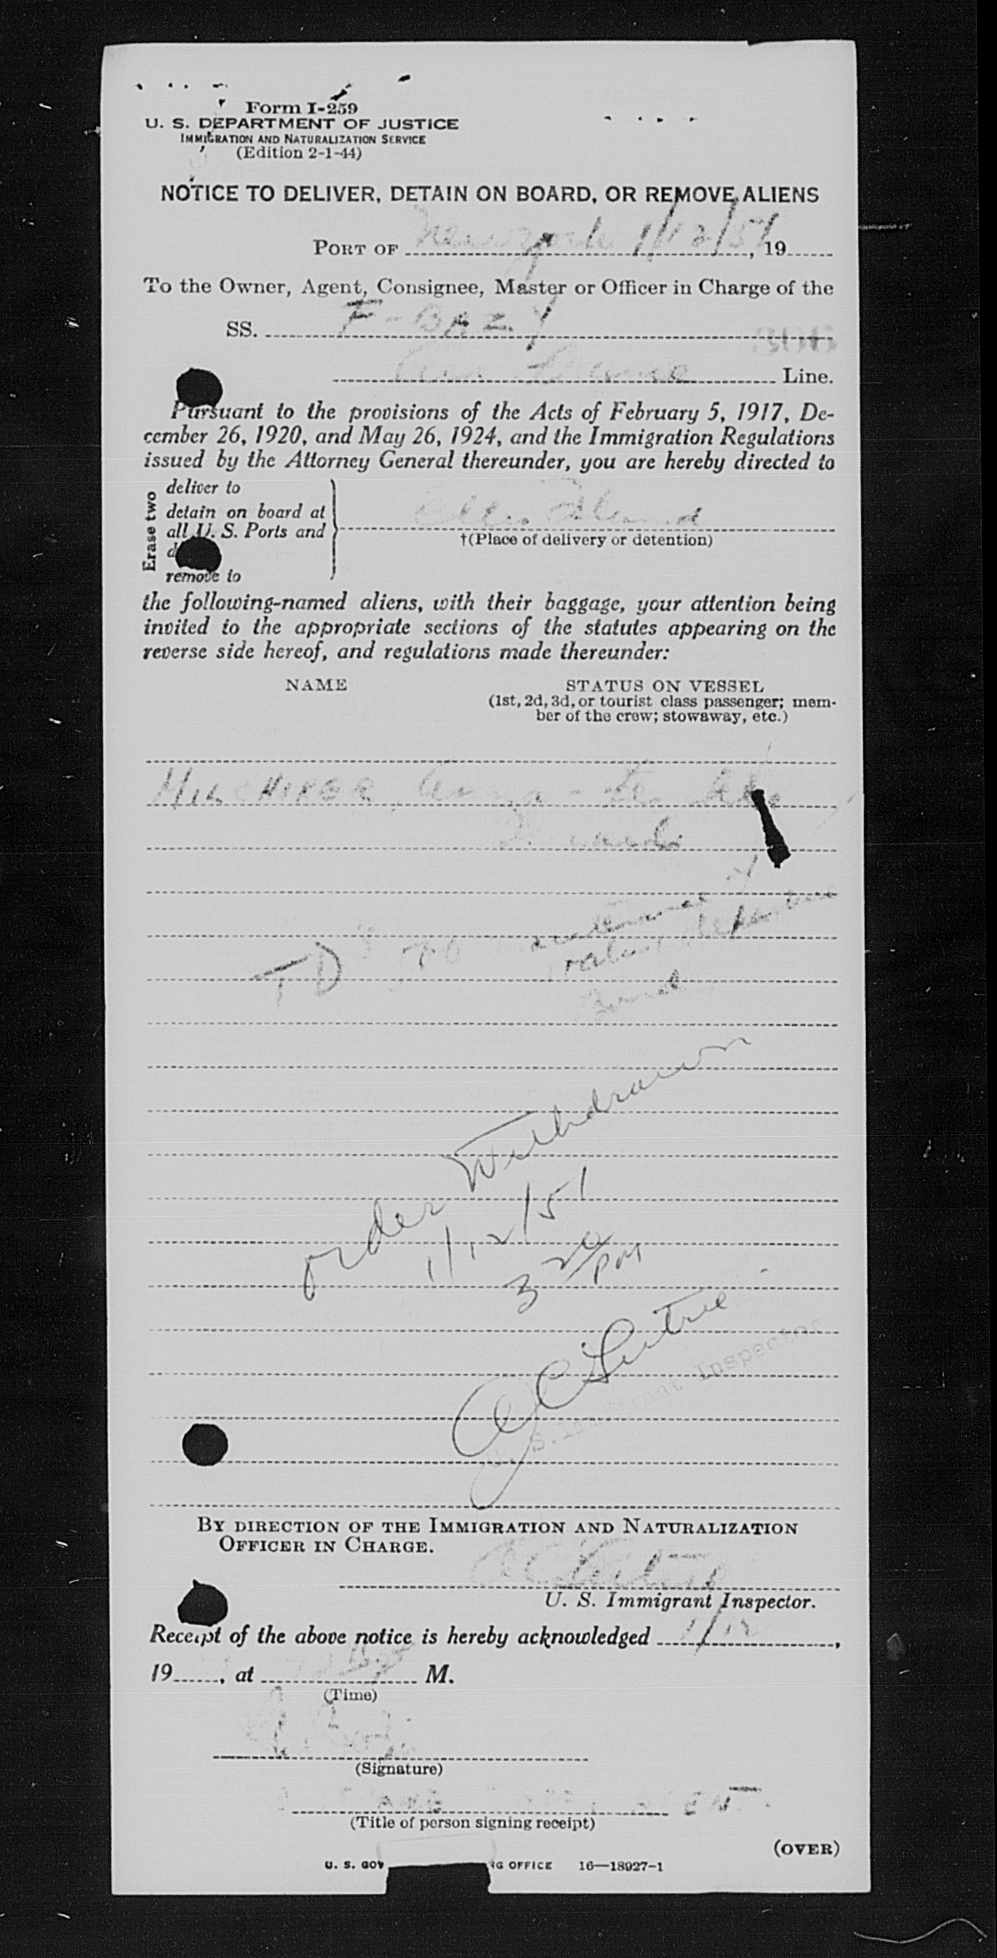 Form I-259
U. S. DEPARTMENT OF JUSTICE
IMMIGRATION AND NATURALIZATION SERVICE
(Edition 2-1-44)
NOTICE TO DELIVER, DETAIN ON BOARD, OR REMOVE ALIENS
PORT OF New York 1/12/51, 19
To the Owner, Agent, Consignee, Master or Officer in Charge of the
SS. F-BAZY
Air France Line.
Pursuant to the provisions of the Acts of February 5, 1917, De-
cember 26, 1920, and May 26, 1924, and the Immigration Regulations
issued by the Attorney General thereunder, you are hereby directed to
Erase two
deliver to
detain on board at
all U. S. Ports and
remove to
Ellis Island
†(Place of delivery or detention)
the following-named aliens, with their baggage, your attention being
invited to the appropriate sections of the statutes appearing on the
reverse side hereof, and regulations made thereunder:
NAME
STATUS ON VESSEL
(1st, 2d, 3d, or tourist class passenger; mem-
ber of the crew; stowaway, etc.)
TD
Order Withdrawn
1/12/51
3 20 PM
U. S. Immigrant Inspector
BY DIRECTION OF THE IMMIGRATION AND NATURALIZATION
OFFICER IN CHARGE.
U. S. Immigrant Inspector.
Receipt of the above notice is hereby acknowledged 1/12,
19, at M.
(Time)
(Signature)
(Title of person signing receipt)
(OVER)
U. S. GOV NG OFFICE 16—18927-1